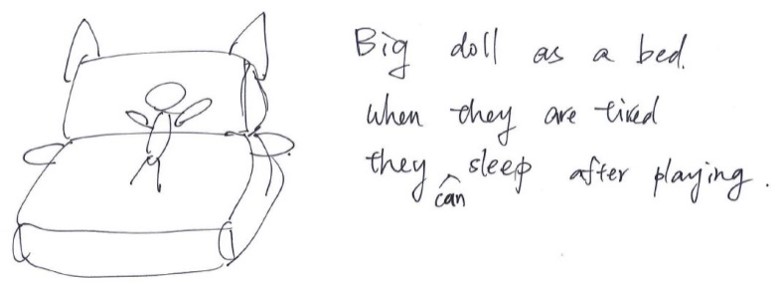 Big doll as a bed.
When they are tired
they can sleep after playing.